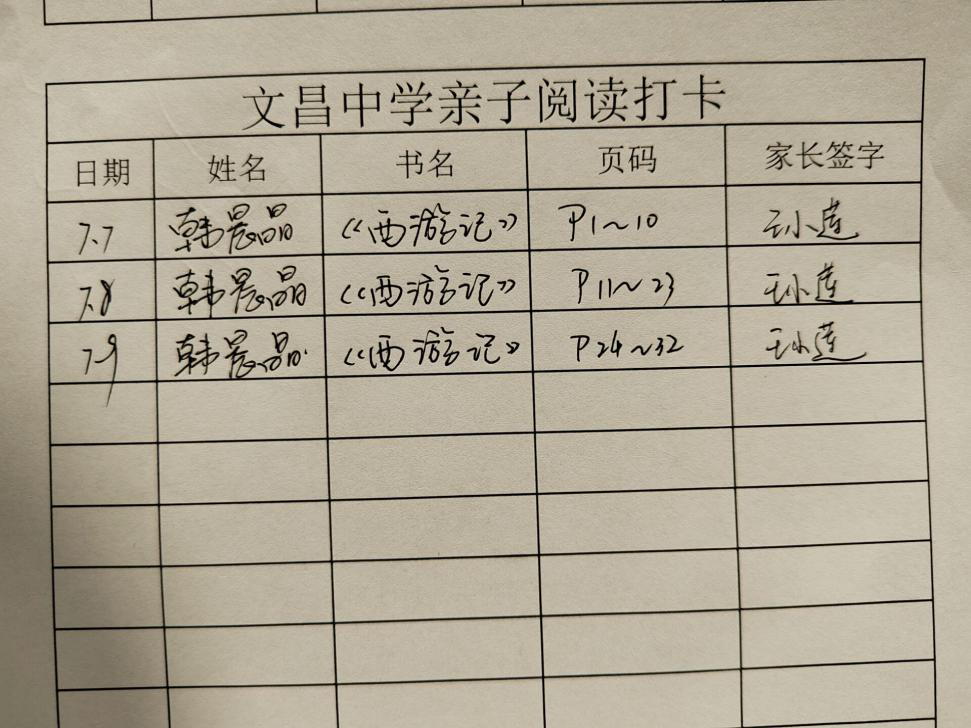 文昌中学亲子阅读打卡
日期 姓名 书名 页码 家长签字
7.7 韩晨晶 《西游记》 P1~10 王小莲
7.8 韩晨晶 《西游记》 P11~23 王小莲
7.9 韩晨晶 《西游记》 P24~32 王小莲